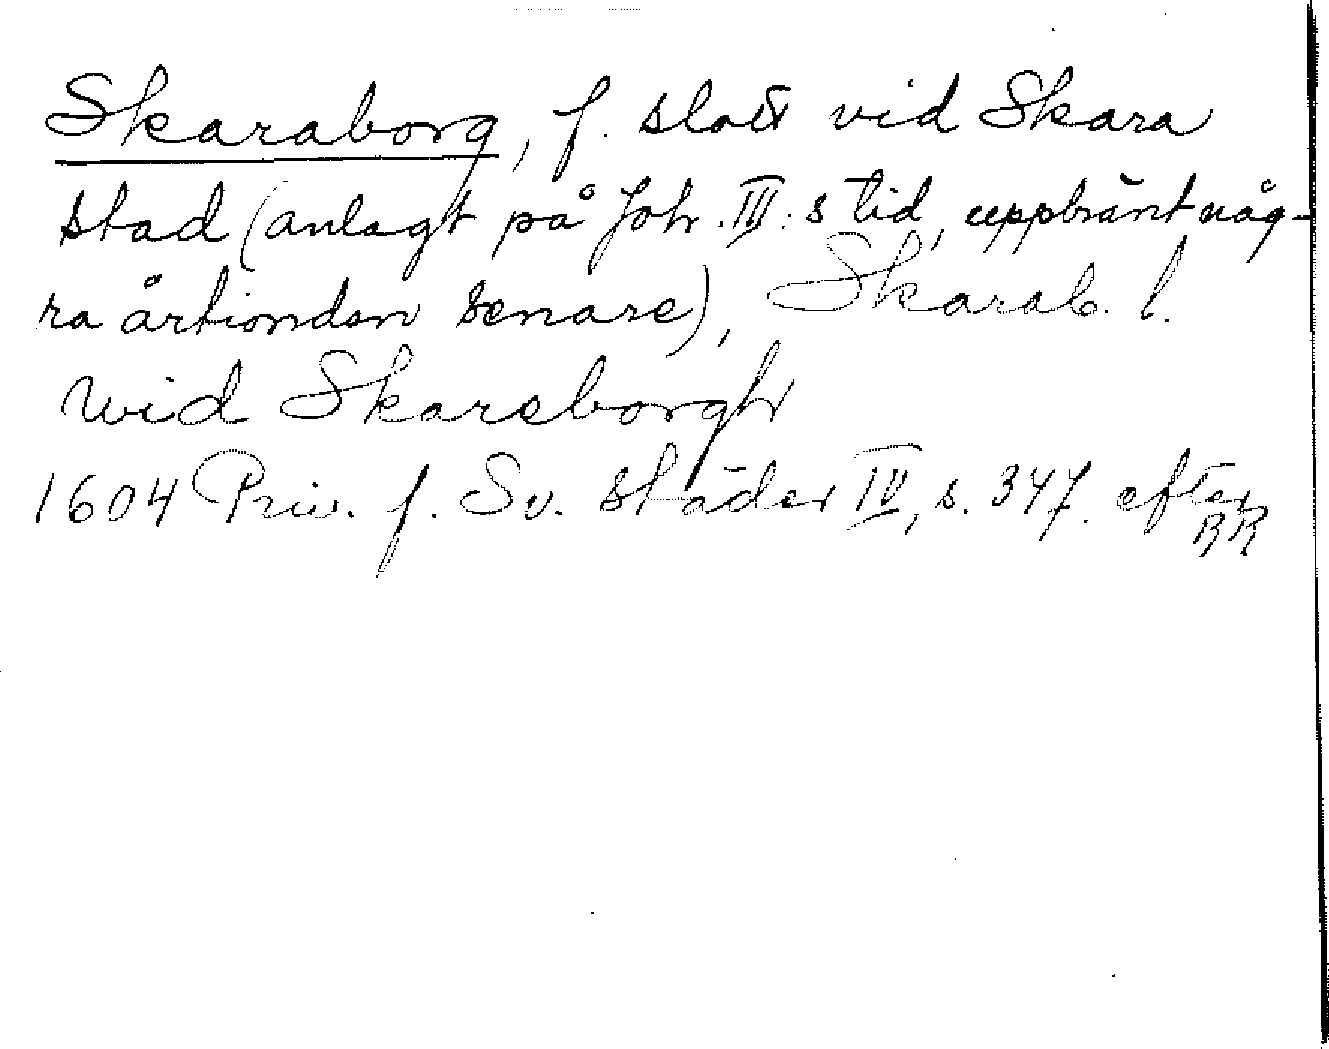 Skaraborg, f. slott vid Skara
stad (anlagt på Joh. III:s tid, uppbränt någ-
ra årtionden senare), Skarab. l.
wid Skarsborgh
1604 Priv. f. Sv. städer IV, s. 347. efter
RR